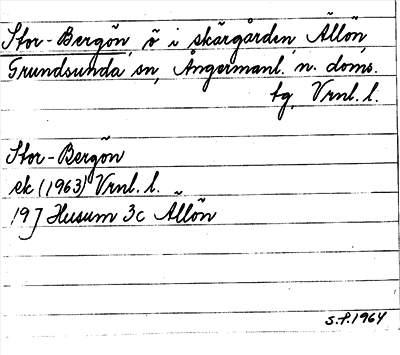 Stor-Bergön, ö i skärgården, Ällön,
Grundsunda sn, Ångermanl. n. doms.
tg, Vrnl. l.
Stor-Bergön
ek (1963) Vrnl. l.
19J Husum 3c Ällön
S.F. 1964